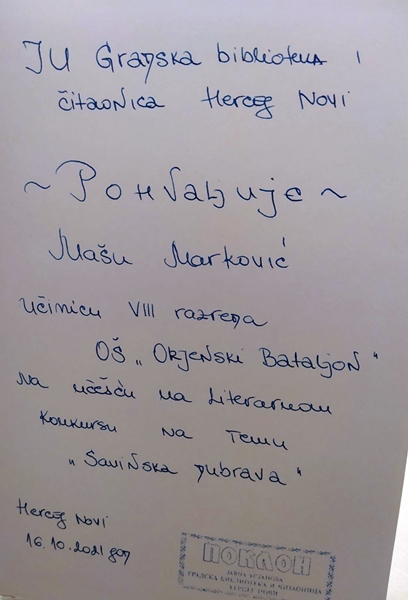 JU Gradska biblioteka i
čitaonica Herceg Novi
~ Pohvaljuje ~
Mašu Marković
učenicu VIII razreda
OŠ „Orjenski Bataljon"
na učešću na Literarnom
Konkursu na Temu
„Savinska Dubrava"
Herceg Novi
16.10.2021 god
ПОКЛОН
ЈАВНА УСТАНОВА
ГРАДСКА БИБЛИОТЕКА И ЧИТАОНИЦА
ХЕРЦЕГ НОВИ